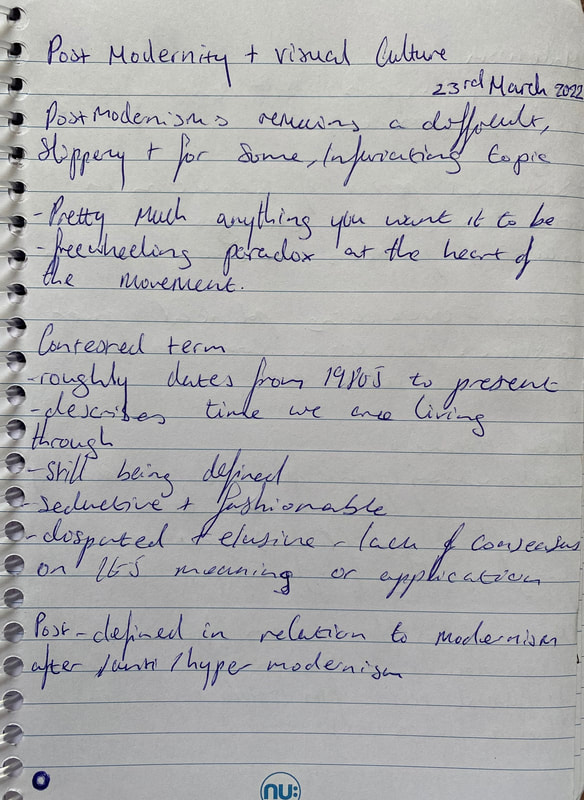 Post Modernity + Visual Culture
23rd March 2022
Postmodernism remains a difficult,
Slippery + for some, infuriating topic
- Pretty Much anything you want it to be
- freewheeling paradox at the heart of
the movement.
Contested term
- roughly dates from 1980s to present
- describes time we are living
through
- still being defined
- seductive + fashionable
- disputed + elusive - lack of consensus
on its meaning or application
Post - defined in relation to modernism
after / anti / hyper modernism
nu: